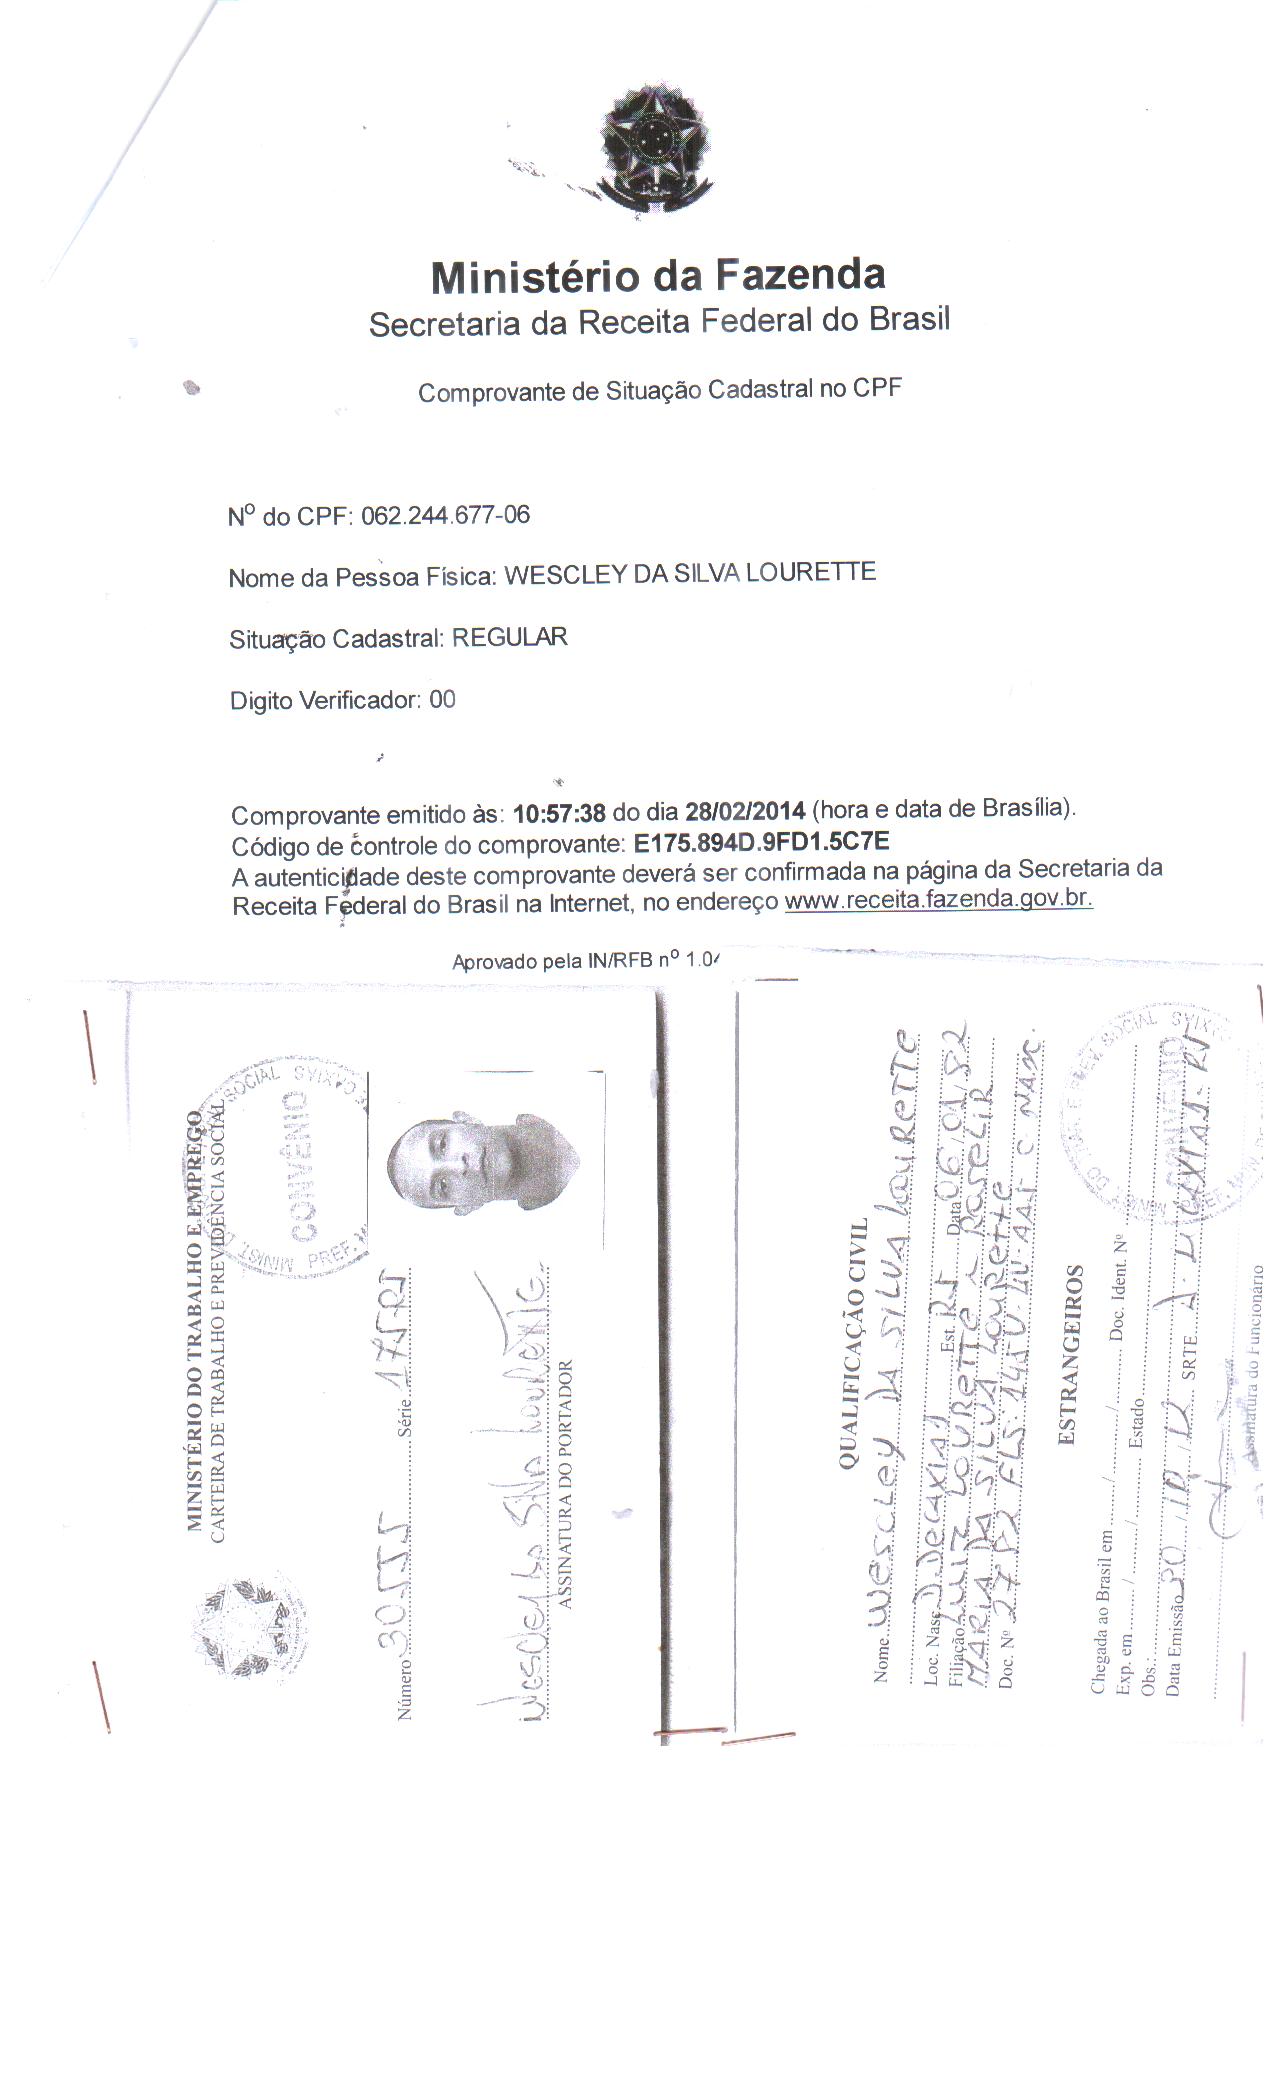 Ministério da Fazenda
Secretaria da Receita Federal do Brasil
Comprovante de Situação Cadastral no CPF
Nº do CPF: 062.244.677-06
Nome da Pessoa Física: WESCLEY DA SILVA LOURETTE
Situação Cadastral: REGULAR
Digito Verificador: 00
Comprovante emitido às: 10:57:38 do dia 28/02/2014 (hora e data de Brasília).
Código de controle do comprovante: E175.894D.9FD1.5C7E
A autenticidade deste comprovante deverá ser confirmada na página da Secretaria da
Receita Federal do Brasil na Internet, no endereço www.receita.fazenda.gov.br.
Aprovado pela IN/RFB nº 1.0
MINISTÉRIO DO TRABALHO E EMPREGO
CARTEIRA DE TRABALHO E PREVIDÊNCIA SOCIAL
SOCIAL CAXIAS
CONVÊNIO
MINIST. PREF. M
Número Série
Silva Lourette
ASSINATURA DO PORTADOR
QUALIFICAÇÃO CIVIL
Nome Wescley da Silva Lourette
Loc. Nasc. D. De Caxias Est. RJ Data 06/01/82
Filiação Luiz Lourette e Roselir
Maria da Silva Lourette
Doc. Nº FLS. C NAS.
ESTRANGEIROS
Chegada ao Brasil em / / Doc. Ident. Nº
Exp. em / / Estado
Obs.:
Data Emissão SRTE Caxias - RJ
Assinatura do Funcionário
SOCIAL CAXIAS
CONVÊNIO
MINIST DO PREF. MUN. DE